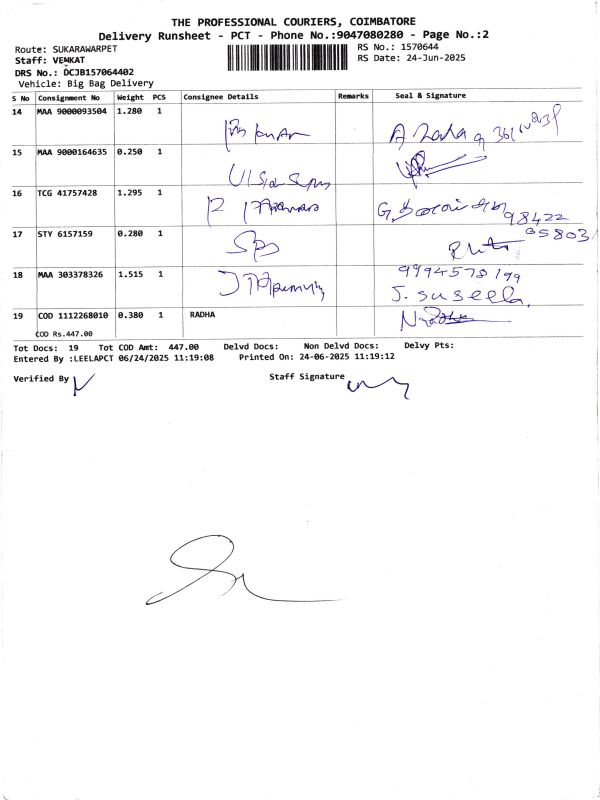 THE PROFESSIONAL COURIERS, COIMBATORE
Delivery Runsheet - PCT - Phone No.:9047080280 - Page No.:2
Route: SUKARAWARPET
RS No.: 1570644
Staff: VENKAT
RS Date: 24-Jun-2025
DRS No.: DCJB157064402
Vehicle: Big Bag Delivery
S No Consignment No Weight PCS Consignee Details Remarks Seal & Signature
14 MAA 9000093504 1.280 1
15 MAA 9000164635 0.250 1
16 TCG 41757428 1.295 1 98422
17 STY 6157159 0.280 1 65803
18 MAA 303378326 1.515 1 9994578199
J. suseela.
19 COD 1112268010 0.380 1 RADHA
COD Rs.447.00
Tot Docs: 19 Tot COD Amt: 447.00 Delvd Docs: Non Delvd Docs: Delvy Pts:
Entered By :LEELAPCT 06/24/2025 11:19:08 Printed On: 24-06-2025 11:19:12
Verified By
Staff Signature